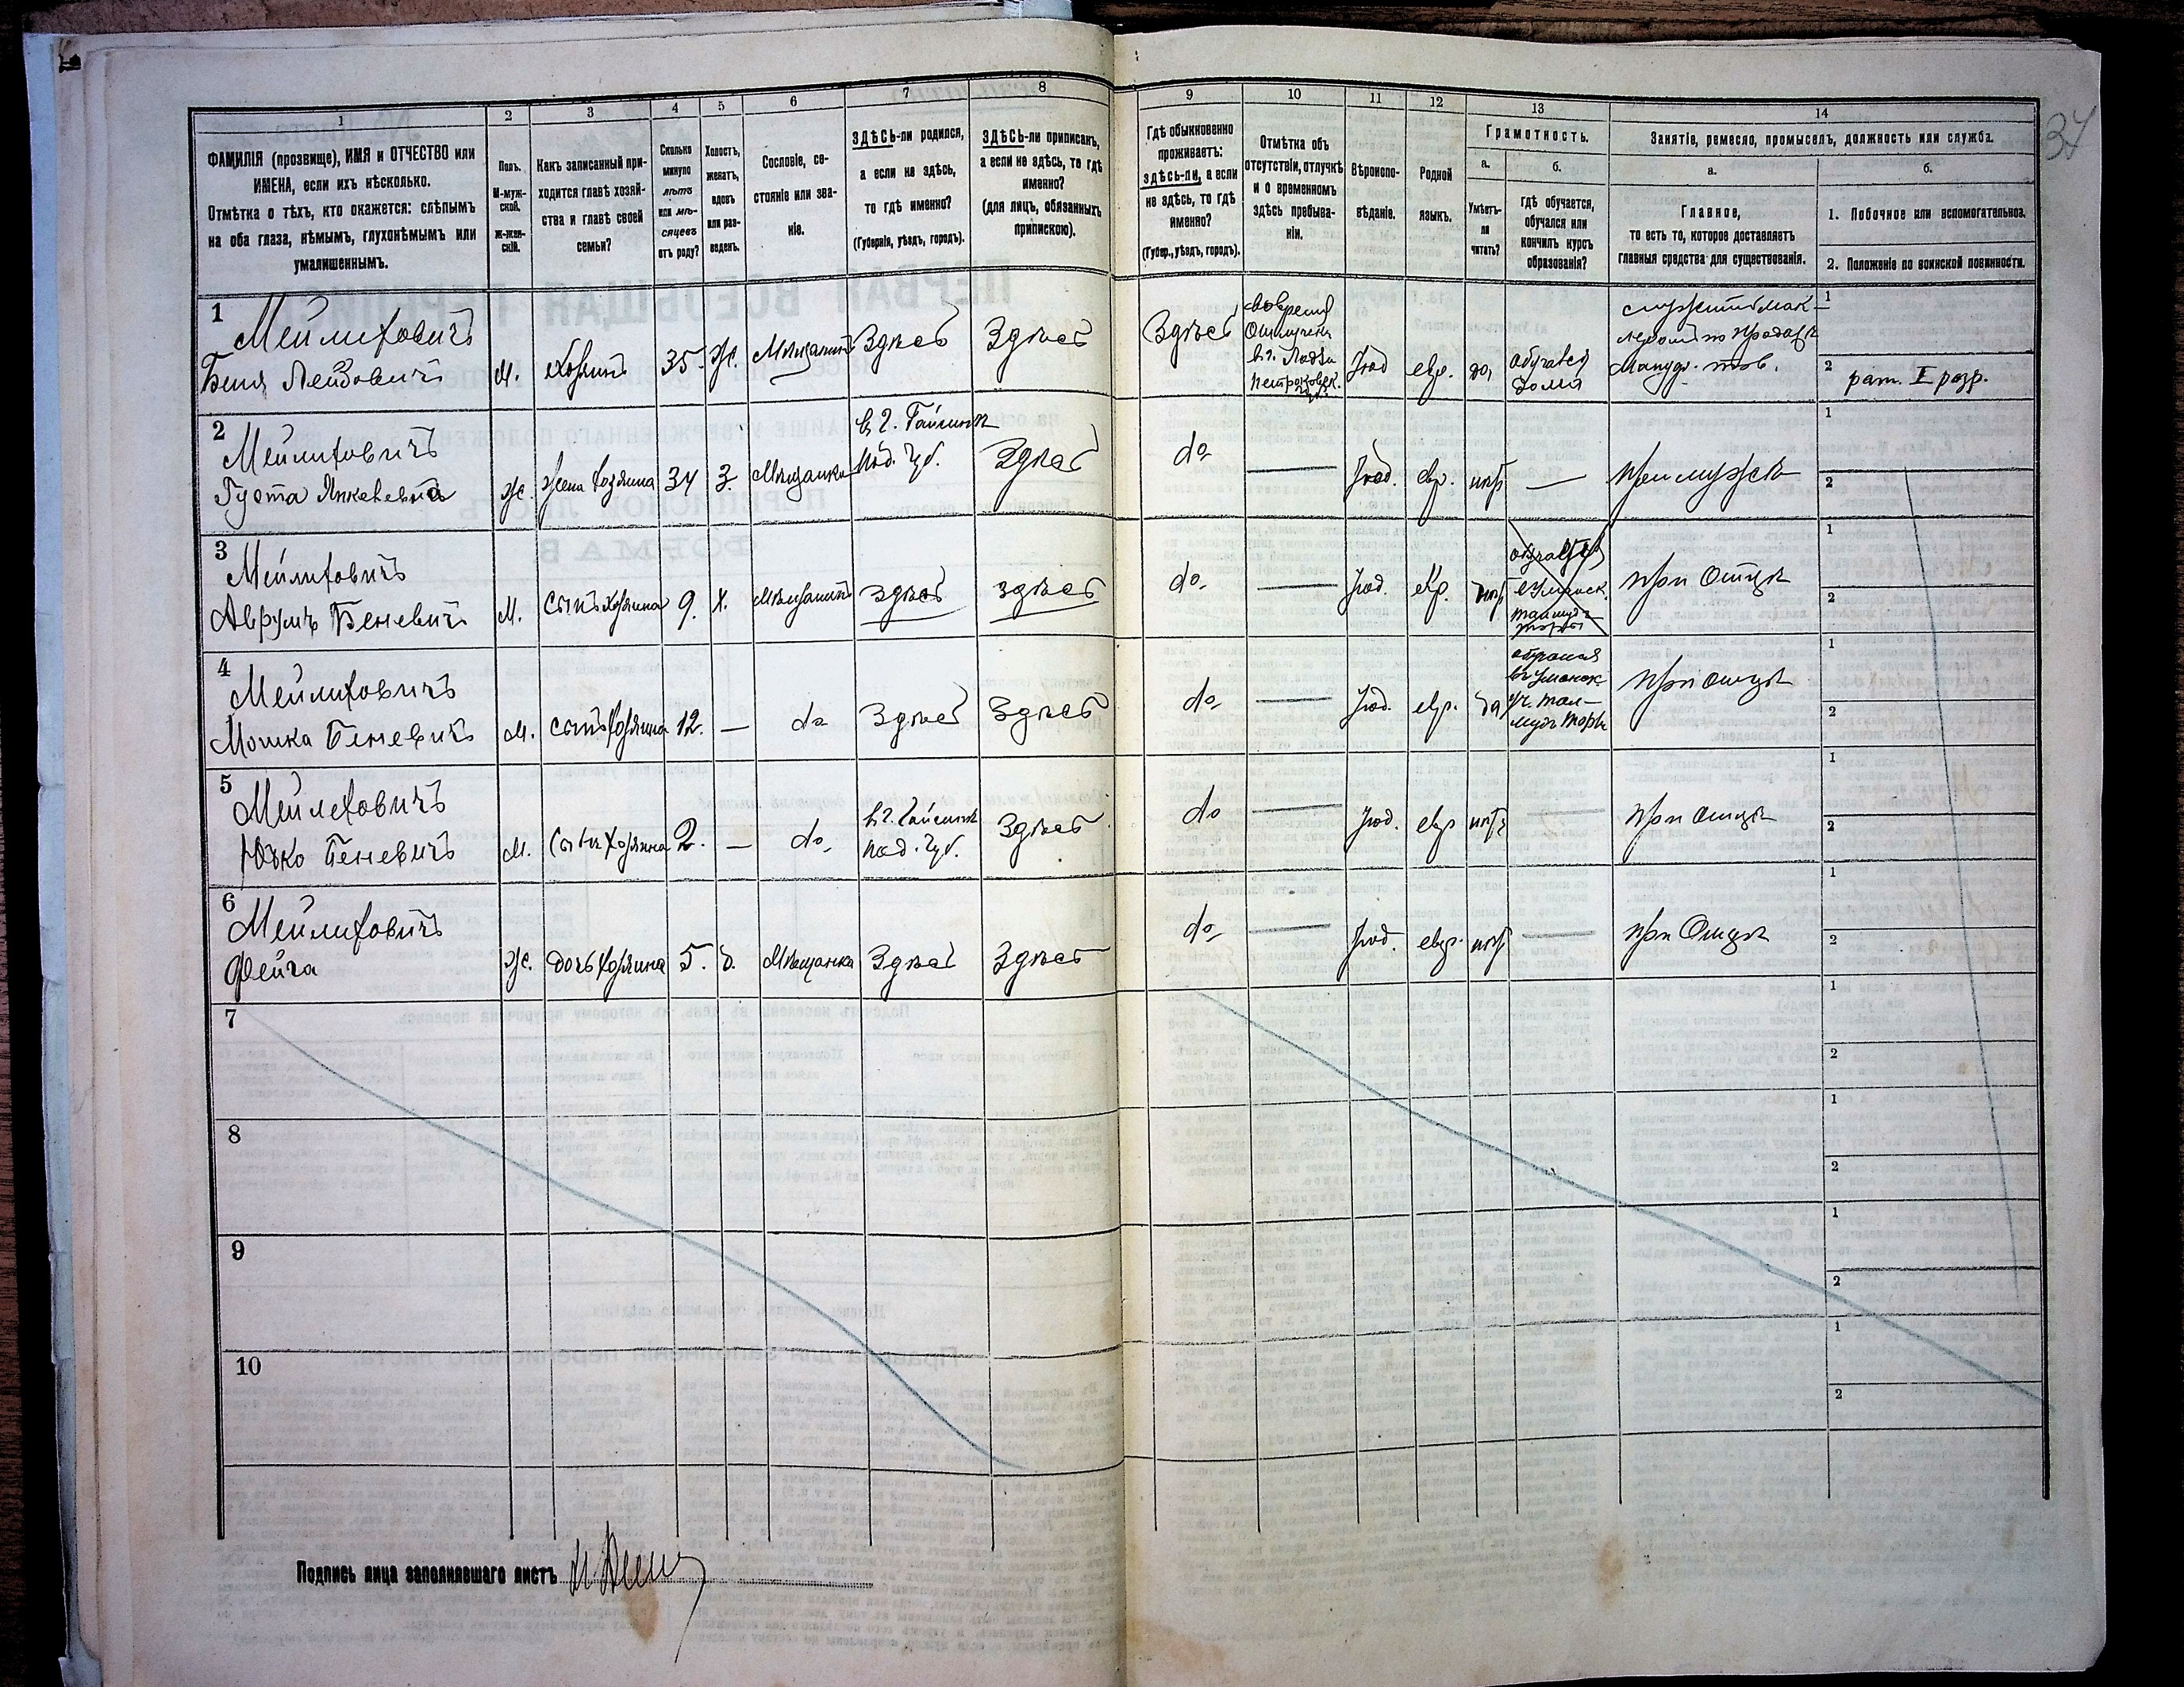 1 2 3 4 5 6 7 8 9 10 11 12 13 14
34
ФАМИЛІЯ (прозвище), ИМЯ и ОТЧЕСТВО или
ИМЕНА, если ихъ нѣсколько.
Отмѣтка о тѣхъ, кто окажется: слѣпымъ
на оба глаза, нѣмымъ, глухонѣмымъ или
умалишеннымъ.
Полъ.
М-муж-
ской.
Ж-жен-
скій.
Какъ записанный при-
ходится главѣ хозяй-
ства и главѣ своей
семьи?
Сколько
минуло
лѣтъ
или мѣ-
сяцевъ
отъ роду?
Холостъ,
женатъ,
вдовъ
или раз-
веденъ.
Сословіе, со-
стояніе или зва-
ніе.
ЗДѢСЬ-ли родился,
а если не здѣсь,
то гдѣ именно?
(Губернія, уѣздъ, городъ).
ЗДѢСЬ-ли приписанъ,
а если не здѣсь, то гдѣ
именно?
(для лицъ, обязанныхъ
припискою).
Гдѣ обыкновенно
проживаетъ:
здѣсь-ли, а если
не здѣсь, то гдѣ
именно?
(Губер., уѣздъ, городъ).
Отмѣтка объ
отсутствіи, отлучкѣ
и о временномъ
здѣсь пребыва-
ніи.
Вѣроиспо-
вѣданіе.
Родной
языкъ.
Грамотность.
а.
Умѣетъ-
ли
читать?
б.
гдѣ обучается,
обучался или
кончилъ курсъ
образованія?
Занятіе, ремесло, промыселъ, должность или служба.
а.
Главное,
то есть то, которое доставляетъ
главныя средства для существованія.
б.
1. Побочное или вспомогательное.
2. Положеніе по воинской повинности.
1
Мейлиховичъ
Беня Лейбовичъ
М. Хозяинъ 35. Ж. Мѣщанинъ Здѣсь Здѣсь
Здѣсь
Отлучен
въ г. Лодзи
Петроковск.
губ.
Іюд евр. да
обучался
дома
Мануф. тов.
1
2 рат. I разр.
2
Мейлиховичъ
Густа Янкелевна
Ж. Жена хозяина 34 З. Мѣщанка
в г. Гайсинѣ
Под. губ.
Здѣсь
do — Іюд. евр. нѣтъ — При мужѣ
1
2
3
Мейлиховичъ
Аврумъ Беневичъ
М. Сынъ хозяина 9. Х. Мѣщанинъ здѣсь здѣсь
do — Іюд. евр. нѣтъ
При Отцѣ
1
2
4
Мейлиховичъ
Мошка Беневичъ
М. Сынъ хозяина 12. — do Здѣсь Здѣсь
do — Іюд. евр. да
въ Уманск
уч. тал-
мудъ торы
При отцѣ
1
2
5
Мейлеховичъ
Юсько Беневичъ
М. Сынъ хозяина 2. — do
в г. Гайсинѣ
Под. губ.
Здѣсь
do — Іюд. евр нѣтъ — При отцѣ
1
2
6
Мейлиховичъ
Фейга
Ж. Дочь хозяина 5. д. Мѣщанка Здѣсь Здѣсь
do — Іюд. евр. нѣтъ — При Отцѣ
1
2
7
1
2
8
1
2
9
1
2
10
1
2
Подпись лица заполнявшаго листъ